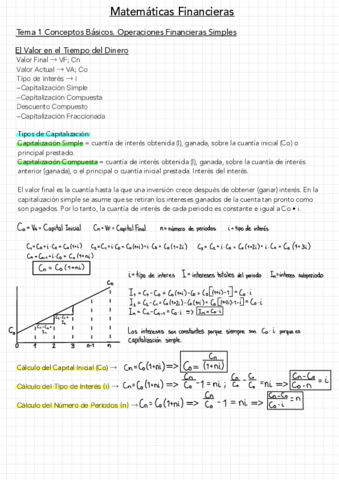 Matemáticas Financieras
Tema 1 Conceptos Básicos. Operaciones Financieras Simples
El Valor en el Tiempo del Dinero
Valor Final → VF; Cn
Valor Actual → VA; Co
Tipo de Interés → i
–Capitalización Simple
–Capitalización Compuesta
Descuento Compuesto
–Capitalización Fraccionada
Tipos de Capitalización:
Capitalización Simple = cuantía de interés obtenida (I), ganada, sobre la cuantía inicial (Co) o
principal prestado.
Capitalización Compuesta = cuantía de interés obtenida (I), ganada, sobre la cuantía de interés
anterior (ganada), o el principal o cuantía inicial prestada. Interés del interés.
El valor final es la cuantía hasta la que una inversión crece después de obtener (ganar) interés. En la
capitalización simple se asume que se retiran los intereses ganados de la cuenta tan pronto como
son pagados. Por lo tanto, la cuantía de interés de cada periodo es constante e igual a Co • i.
C₀ = VA = Capital Inicial Cn = VF = Capital Final n = número de periodos i = tipo de interés
C₁ = C₀ + i · C₀ = C₀(1+i) C₂ = C₁ + i · C₀ = C₀(1+i) + i · C₀ = C₀(1+2i) C₃ = C₂ + i · C₀ = C₀(1+2i) + i · C₀ = C₀(1+3i)
Cn = C₀(1+ni)
i = tipo de interes I = intereses totales del periodo
I₁ = C₁ - C₀ = C₀(1+i) - C₀ = C₀[(1+i)-1] = C₀ · i
In = Cn - Cn-1 = C₀ · i => In = C₀ · i
Los intereses son constantes porque siempre son C₀ · i porque es
Capitalización simple.
Cn
C₀
1 2 3 n-1 n
Cálculo del Capital Inicial (Co) → Cn = C₀(1+ni) => C₀ = Cn / (1+ni)
Cálculo del Tipo de Interés (i) → Cn = C₀(1+ni) => Cn / C₀ - 1 = ni ; Cn / C₀ - C₀ / C₀ = ni => Cn - C₀ / C₀ · n = i
Cálculo del Número de Periodos (n) → Cn = C₀(1+ni) => Cn / C₀ - 1 = ni => Cn - C₀ / C₀ · i = n